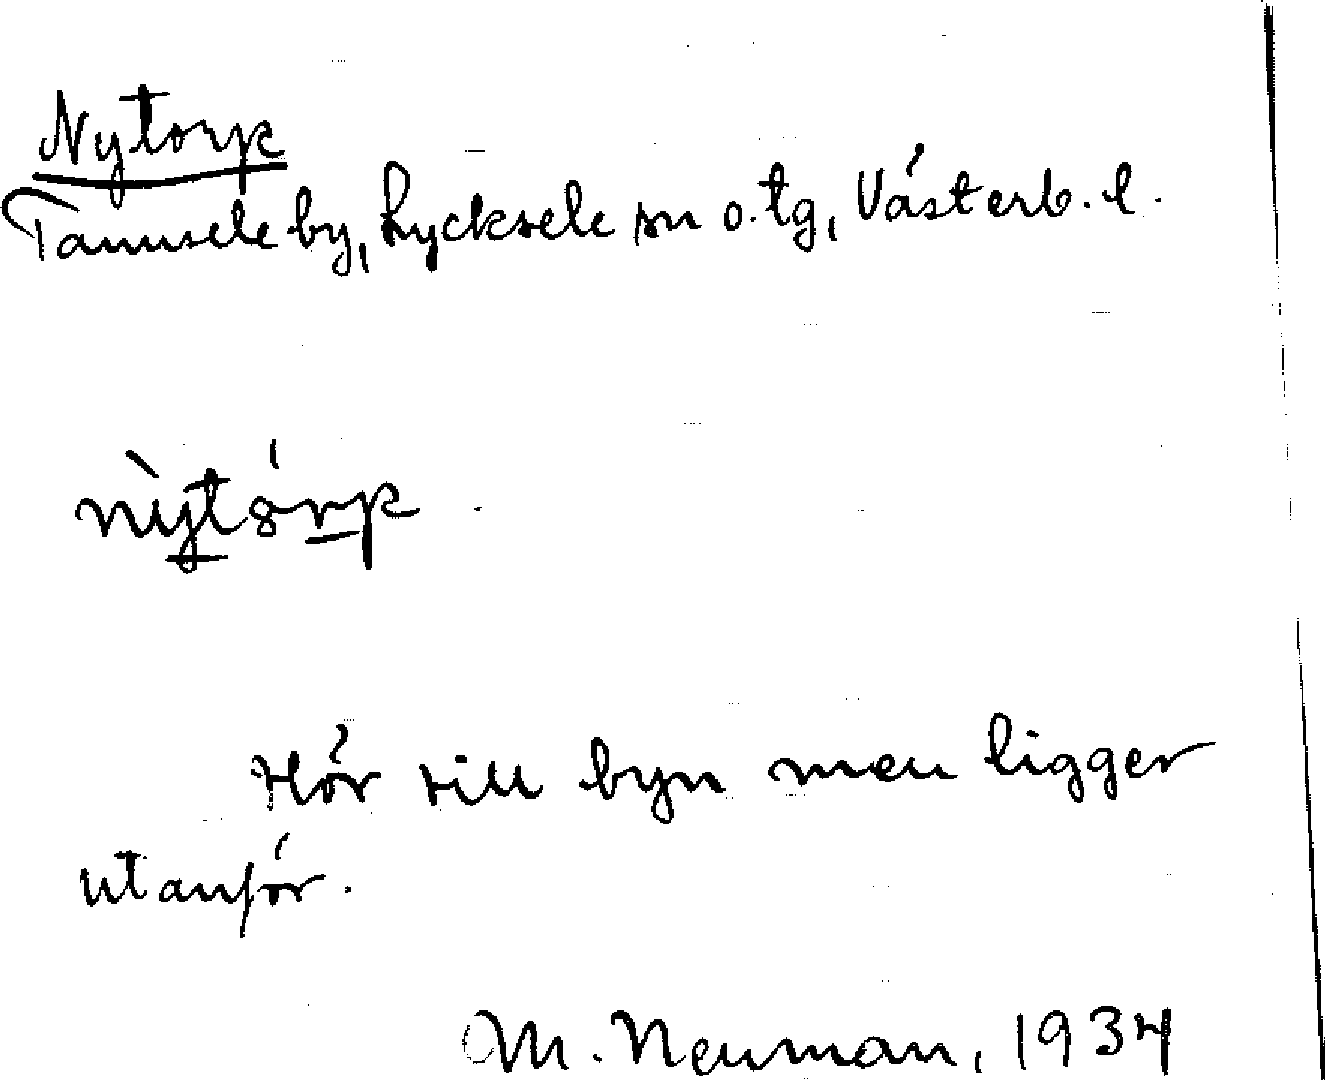 Nytorp
Tannsele by, Lycksele sn o. tg, Västerb. l.
Hör till byn men ligger
utanför.
M. Neuman, 1934